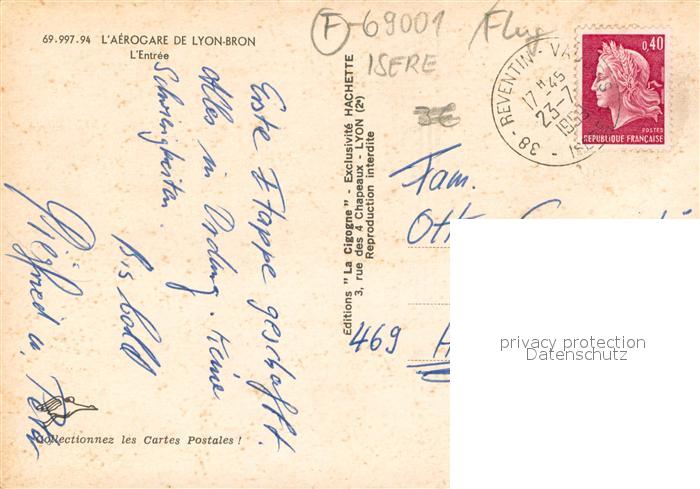 69-997-94 L'AÉROGARE DE LYON-BRON
L'Entrée
Erste Etappe geschafft.
Alles in Ordnung. Keine
Schwierigkeiten.
Bis bald
Siegfried u. Peter
Collectionnez les Cartes Postales !
Editions "La Cigogne" - Exclusivité HACHETTE
3, rue des 4 Chapeaux - LYON (2e)
Reproduction interdite
F-69001
ISERE
Flug
3€
38 - REVENTIN-VAU
17H45
23-7
ISERE
0,40
POSTES
REPUBLIQUE FRANÇAISE
Fam.
Otto
469 H
privacy protection
Datenschutz